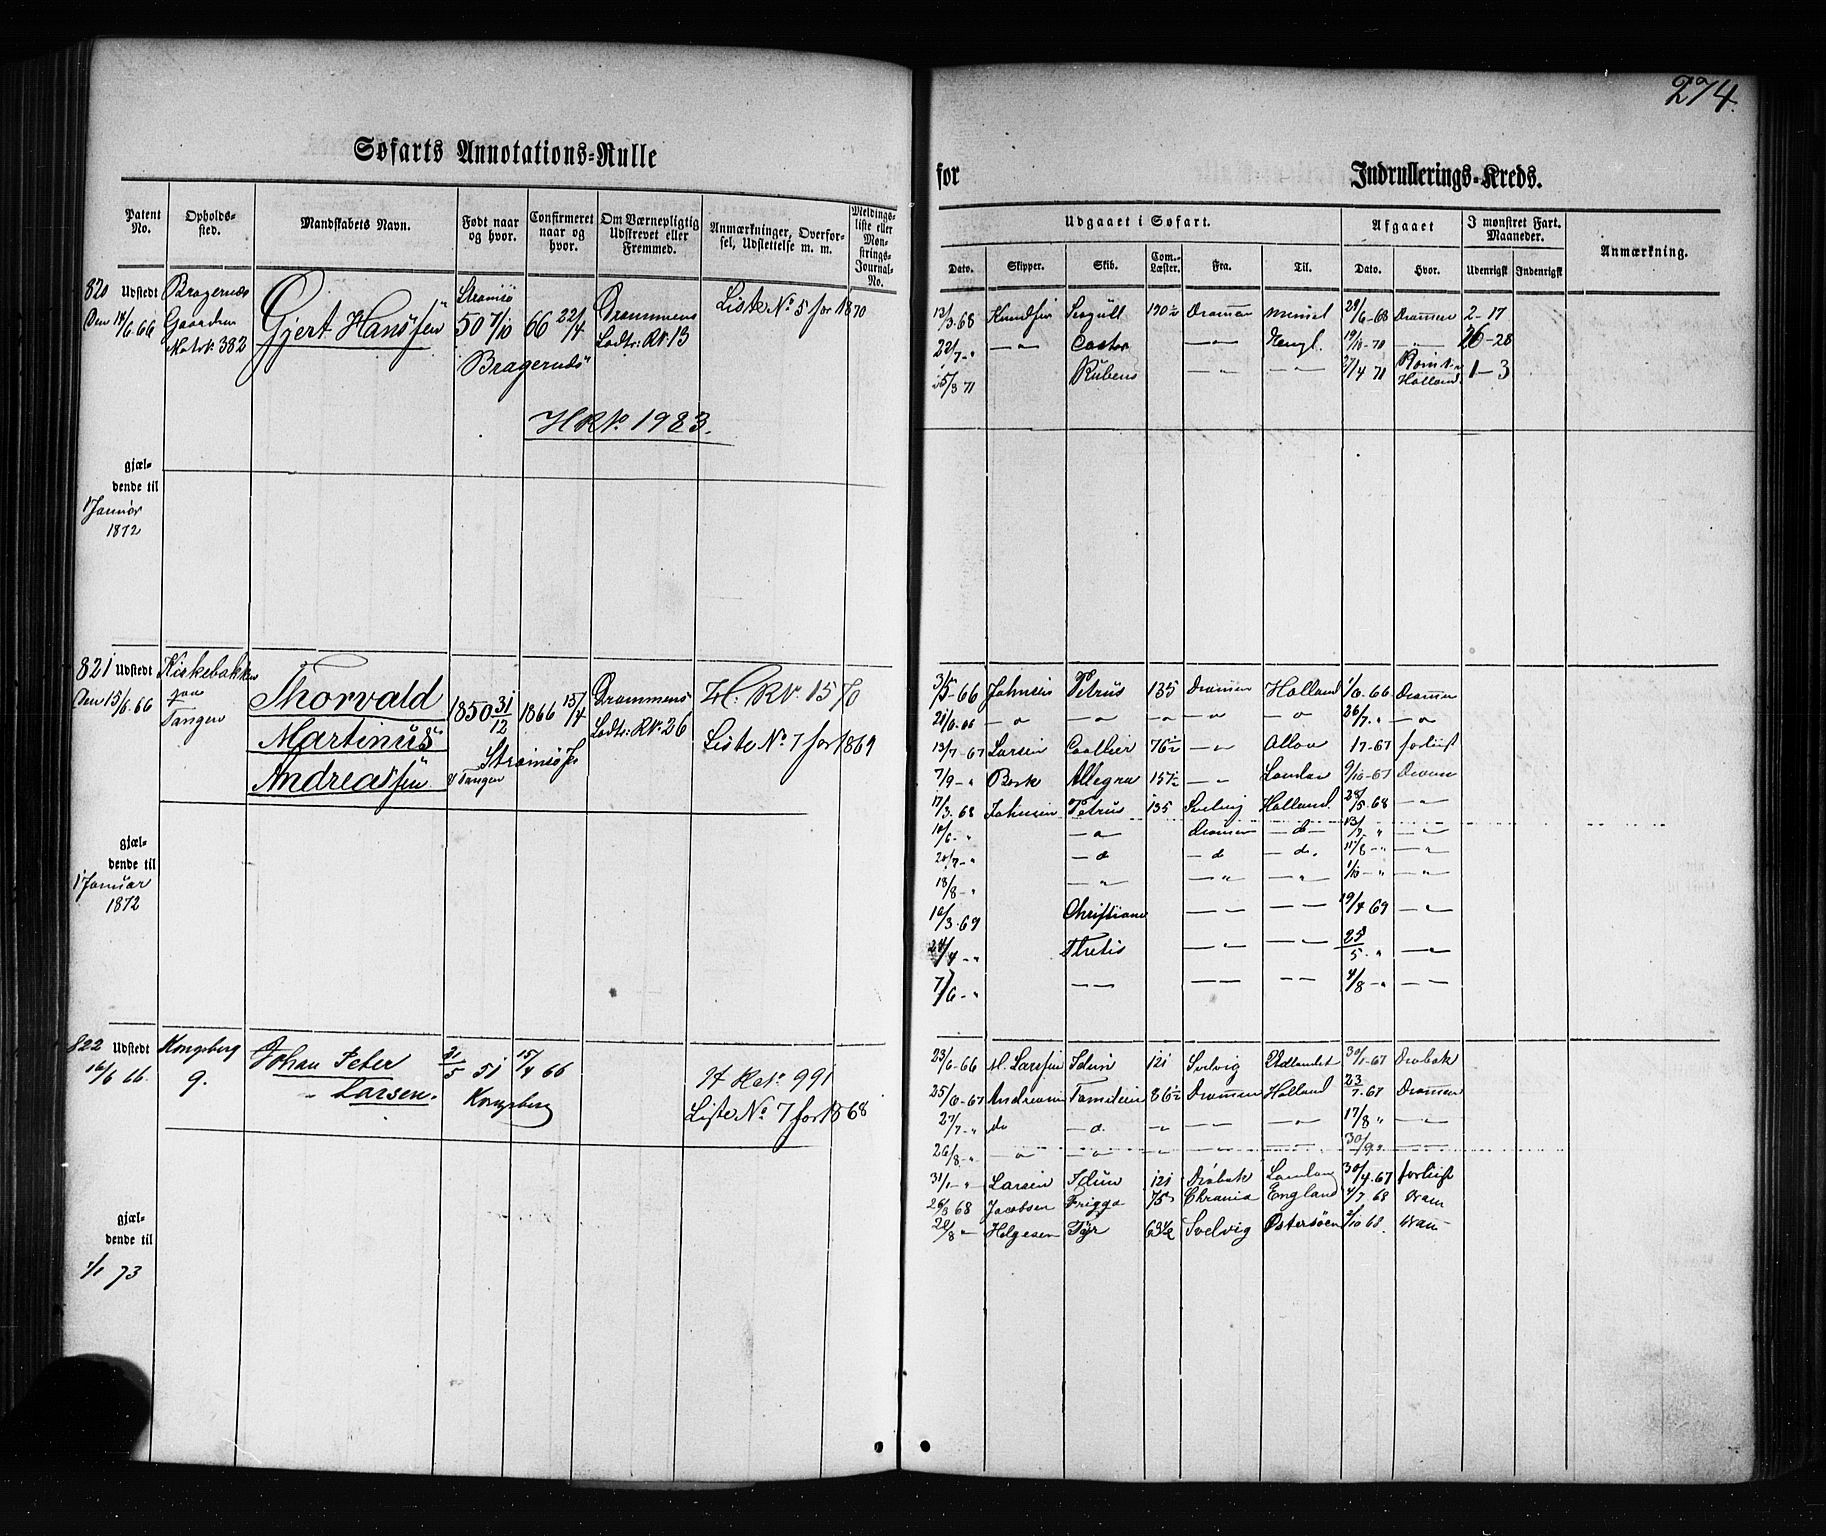 274.
Søfarts Annotations-Rulle
for Indrullerings-Kreds.
Patent No.
Opholds-sted.
Mandskabets Navn.
Født naar og hvor.
Confirmeret naar og hvor.
Om Værnepligtig Udskrevet eller Fremmed.
Anmærkninger, Overfor-sel, Udslettelse m. m.
Meldings-liste eller Møn-strings-Journal-No.
Udgaaet i Søfart.
Afgaaet
I mønstret Fart. Maaneder.
Anmærkning.
Dato. Skipper. Skib. Com.-Læster. Fra. Til. Dato. Hvor. Udenrigst Indenrigst
820 Udstedt
Den 14/6 66
Bragernæs
Gaarden
Matr. 382
Gjert Hanssen
Strømsø
50 7/10
Bragernæs
66 22/4
Drammens
Lodts: RN. 13
Liste No. 5 for 1870
HRN. 1983.
gjæl-
dende til
1 Januar
1872
13/3 68 Knudsen 170½ Drammen 29/6 68 Drammen 2-17
22/7 " — " Castor — " Engl. 19/10 70 — " 26-28
25/3 71 Rubens — " — " 27/4 71 Holland 1-3
821 Udstedt
Den 15/6 66
Kirkebakken
paa
Tangen
Thorvald
Martinus
Andreassen
1850 31/12
Strømsø
Tangen
1866 15/4
Drammens
Lodts: RN. 26
H. RN 1576
Liste No. 7 for 1869
gjæl-
dende til
1 Januar
1872
31/5 66 Johnsen Petrus 135 Drammen Holland 66 Drammen
— " — " — " — " — " 26/7 " — "
13/7 67 Larsen 76½ — " Alloa 17-67 forliist
7/9 " Bork Allegra 157½ — " London 9/10-67 Dram
17/3 68 Johnsen Petrus 135 Svelvig Holland. 28/5 68 — "
10/6 " — " Drammen — d — 13/7 " — "
20/7 " — d — d — d. 11/8 " — "
18/8 " — " — " — " 1/10 " — "
10/3 69 Christiane — " — " 19/4 69 — "
24/4 " Thetis — " — " 25/5 " — "
7/6 " — — — — — — 4/8 " — —
822 Udstedt
16/6 66.
Kongsberg
9.
Johan Peter
Larsen.
21/5 51
Kongsberg
15/4 66
H RN. 991
Liste No. 7 for 1868
gjæl-
dende til
1/1 73
23/6 66 M. Larssen Idun 121 Svelvig Udlandet 30/1-67 Drøbak
25/6-67 86½ Drammen Holland 23/7 67 Drammen
27/7 " do — d. — " — — — " 17/8 " — —
26/8 " — " — " — — — 30/9 " — —
31/1 " Larsen Idun 121 Drøbak London 30/4 67 forliist
26/3 68 Jacobsen Frigga 75 Chrania England 4/7 68 Dram
20/8 " Helgesen Tyr 63½ Svelvig Østersøen 2/10 68. Dram